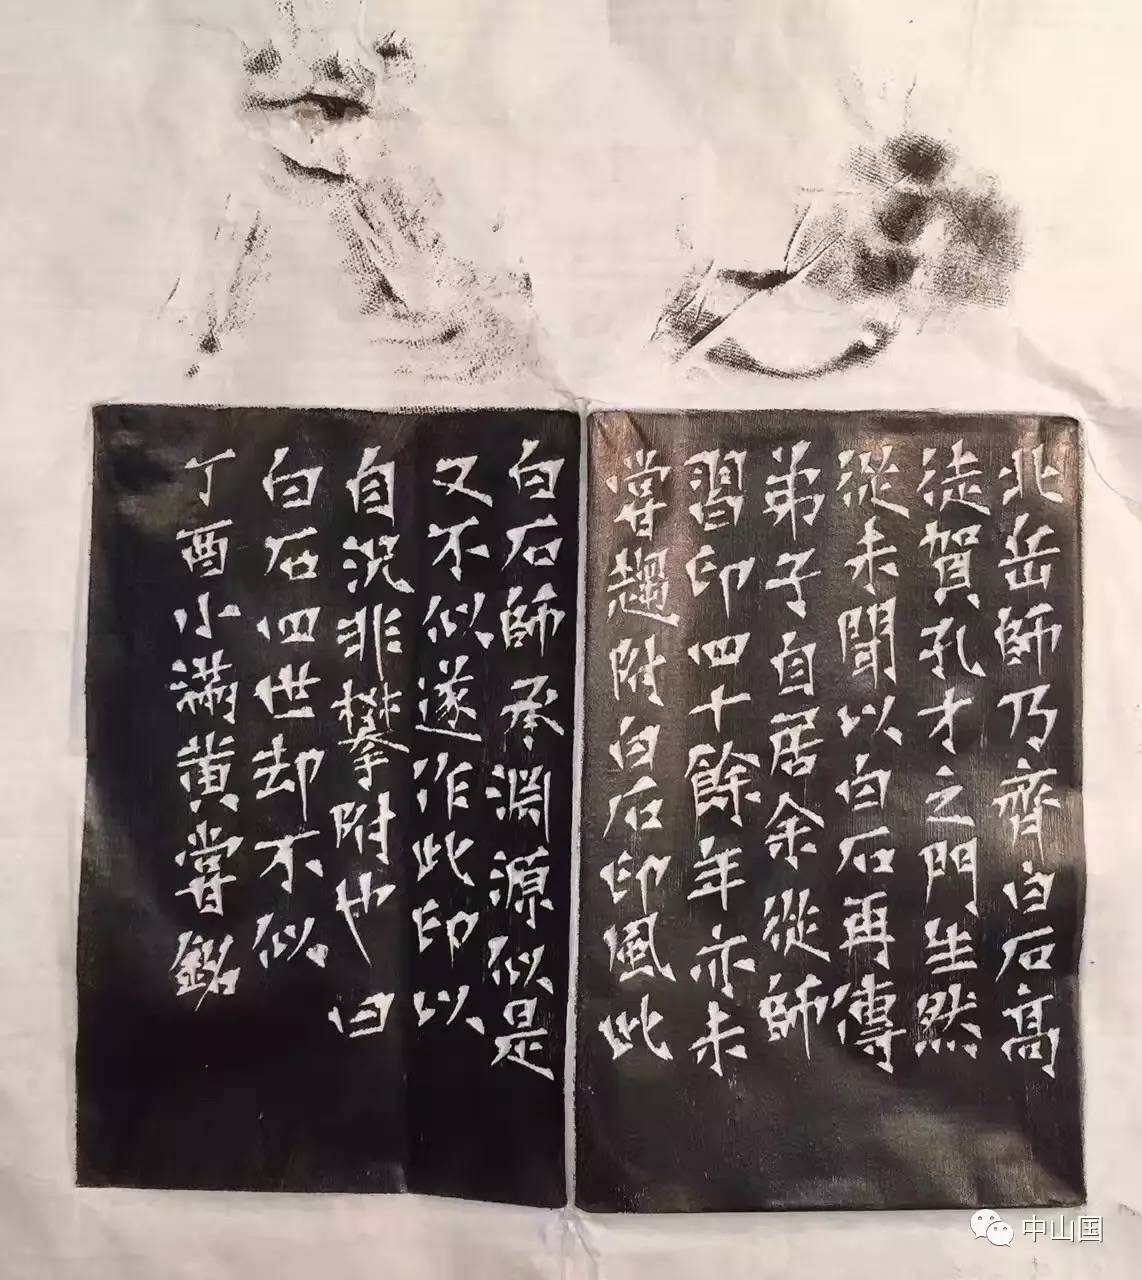 北岳師乃齊白石高
徒賀孔才之門生然
從未聞以白石再傳
弟子自居余從師
習印四十餘年亦未
嘗趨附白石印風此
白石師承淵源似是
又不似遂作此印以
自況非攀附也曰
白石四世却不似
丁酉小滿黄嘗銘
中山国